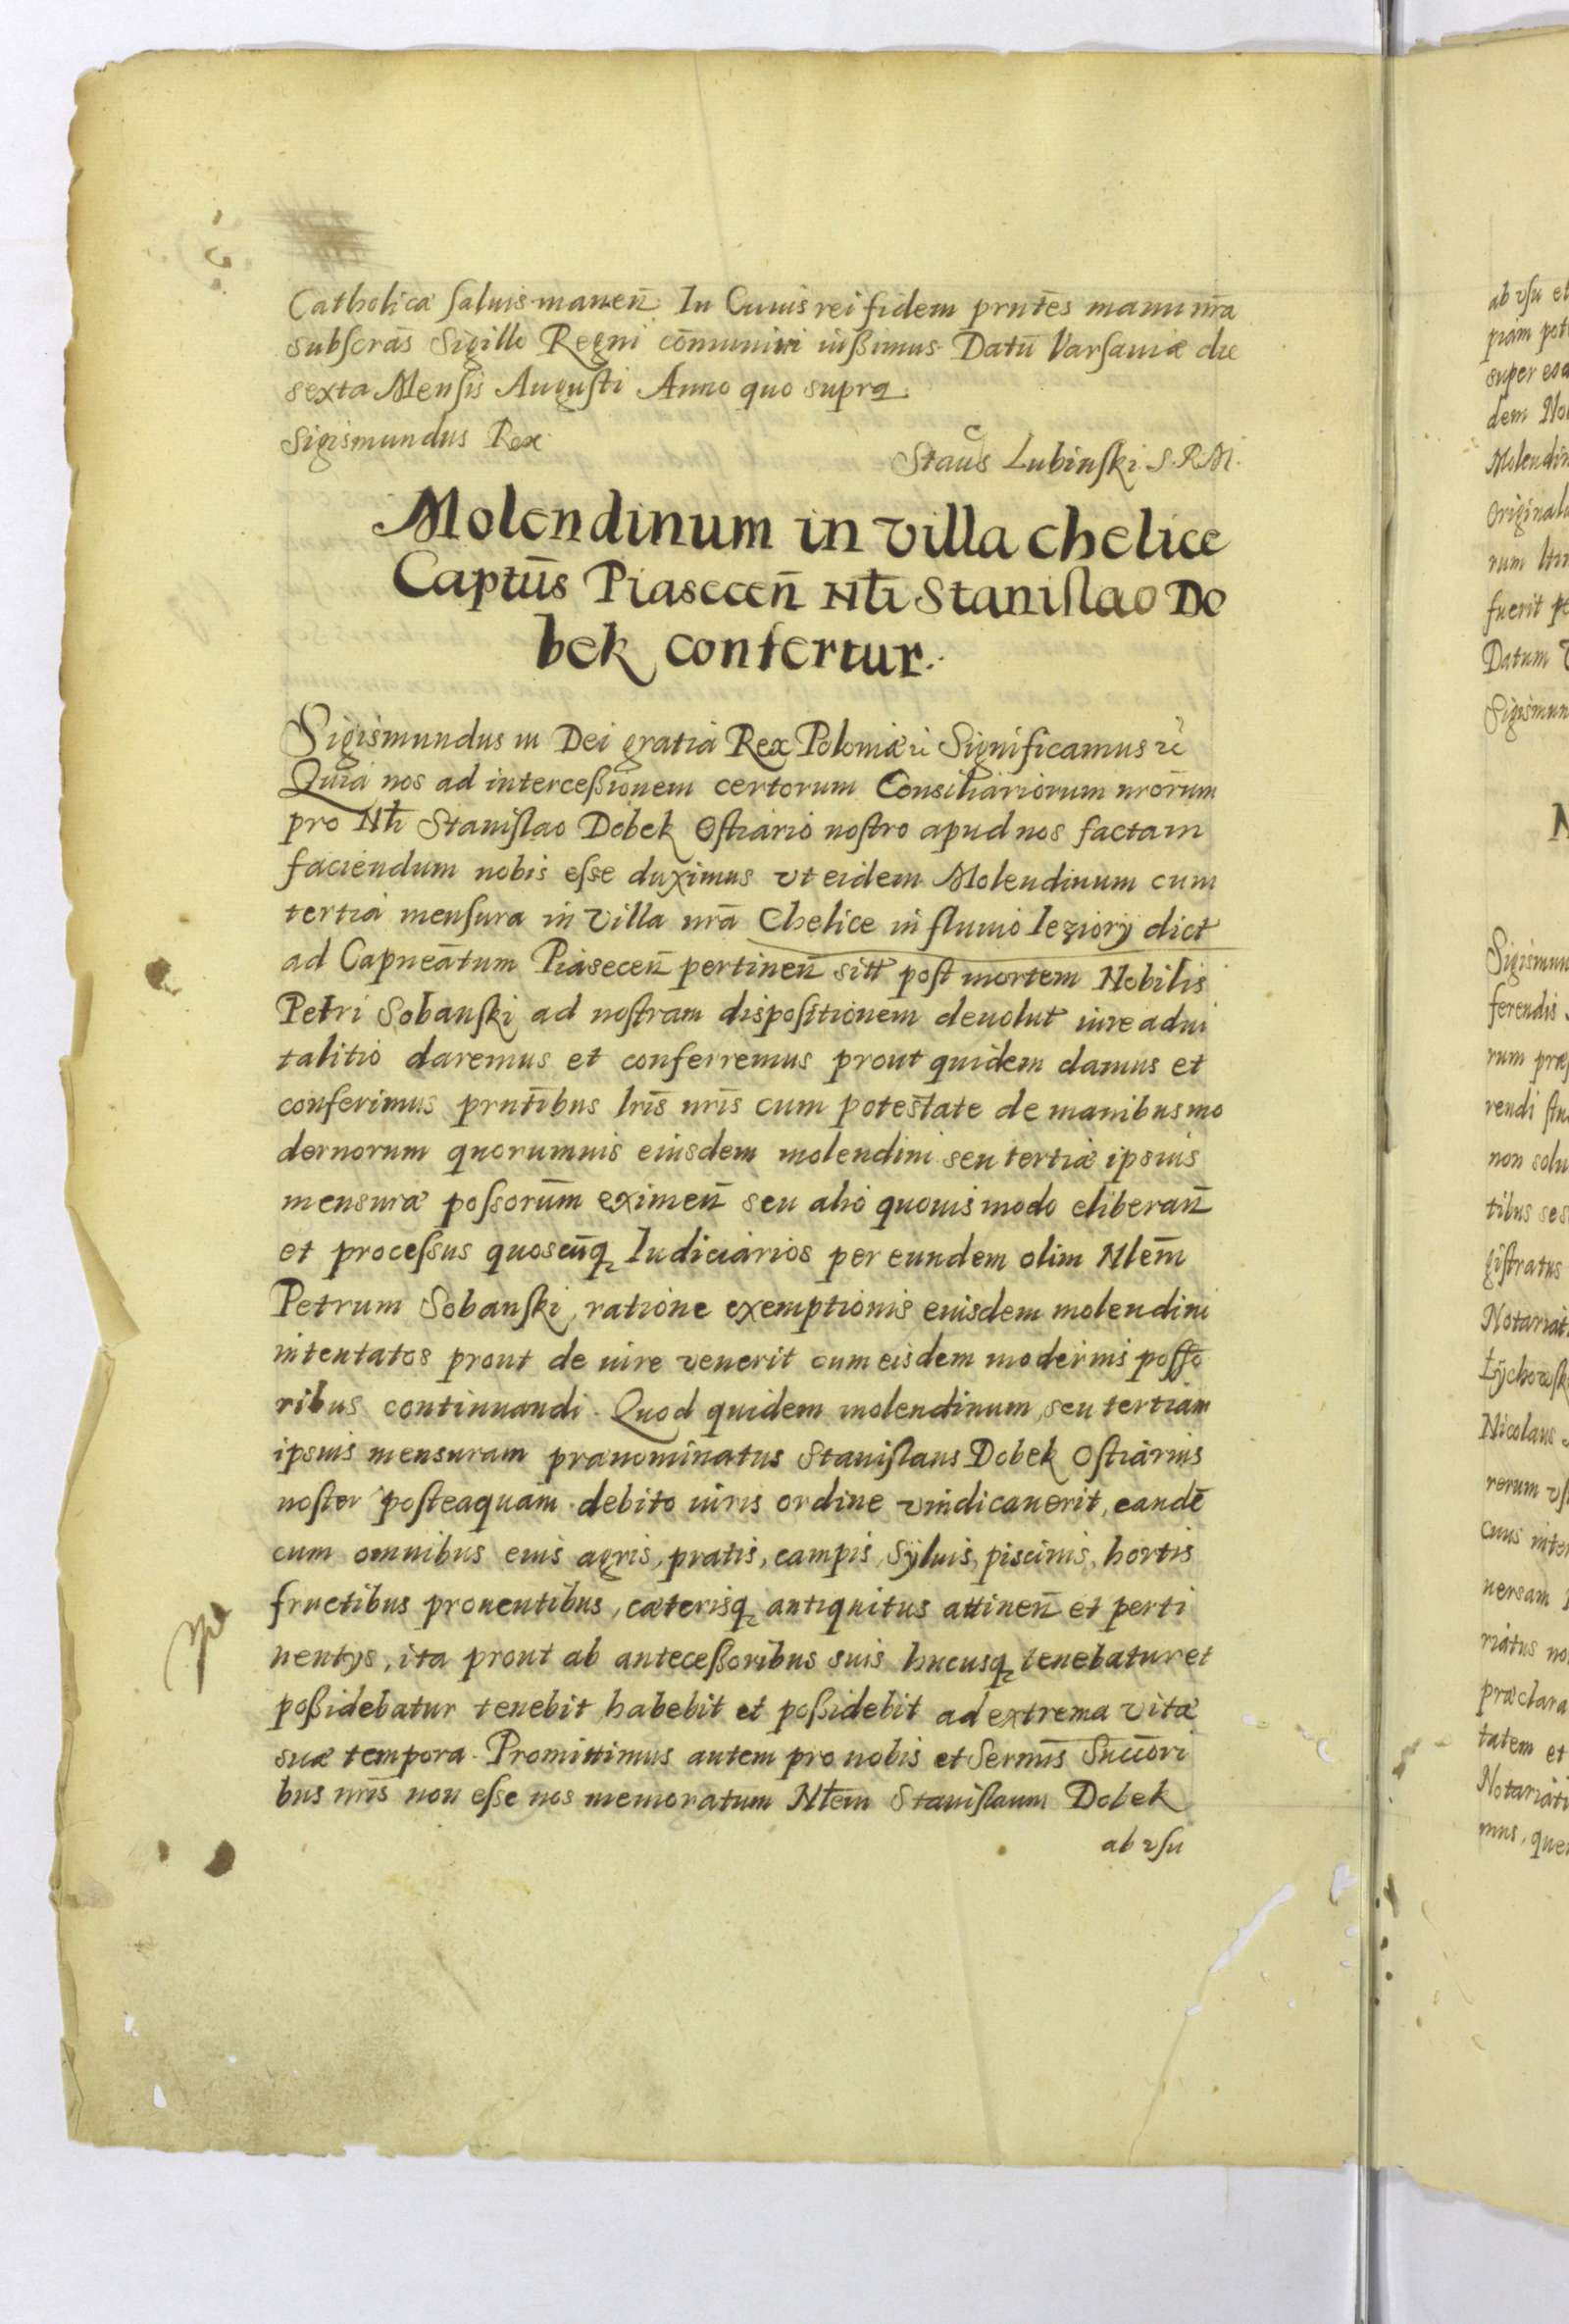 Catholicæ saluis manen̄. In Cuius rei fidem prnt̄es manu nr̄a
subscrās Sigillo Regni cōmuniri iußimus. Datū Varsauiæ die
sexta Mensis Augusti Anno quo supra.
Sigismundus Rex.
Staūs Lubinski S.R.M.
Molendinum in villa chelice
Captūs Piasecen̄ Nłi Stanislao Do
bek confertur.
Sigismundus III Dei gratia Rex Poloniæ ꝛc̃ Significamus ꝛc̃
Quia nos ad interceßionem certorum Consiliariorum nrōrum
pro Nłi Stanislao Dobek Ostiario nostro apud nos factam
faciendum nobis esse duximus vt eidem Molendinum cum
tertia mensura in villa nrā Chelice in fluuio Ieziory dict
ad Capneātum Piasecen̄ pertinen̄ sitt post mortem Nobilis
Petri Sobanski ad nostram dispositionem deuolut iure adui
talitio daremus et conferremus prout quidem damus et
conferimus prnt̄ibus lrīs nrīs cum potestate de manibus mo
dernorum quorumuis eiusdem molendini seu tertiæ ipsius
mensuræ possorūm eximen̄ seu alio quouis modo eliberan̄
et processus quoscūq Iudiciarios per eundem olim Nlem̄
Petrum Sobanski ratione exemptionis eiusdem molendini
intentatos prout de iure venerit cum eisdem modernis posso
ribus continuandi. Quod quidem molendinum, seu tertiam
ipsius mensuram prænominatus Stanislaus Dobek Ostiarius
noster posteaquam debito iuris ordine vindicauerit, eandē
cum omnibus eius agris, pratis, campis, syluis, piscinis, hortis
fructibus prouentibus, cæterisq antiquitus attinen̄ et perti
nentys, ita prout ab anteceßoribus suis hucusq tenebatur et
poßidebatur tenebit habebit et poßidebit ad extrema vitæ
suæ tempora. Promittimus autem pro nobis et Sermīs Succōri
bus nrīs non esse nos memoratum Nłem Stanislaum Dobek
ab vsu